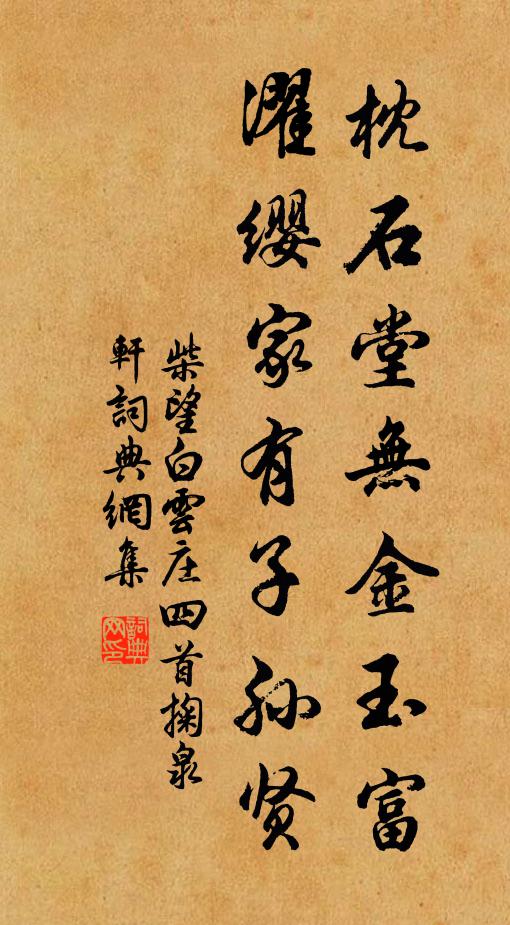 枕石堂無金玉富
濯纓家有子孙贤
柴望白雲庄四首掬泉
軒詞典網集
詞典网印